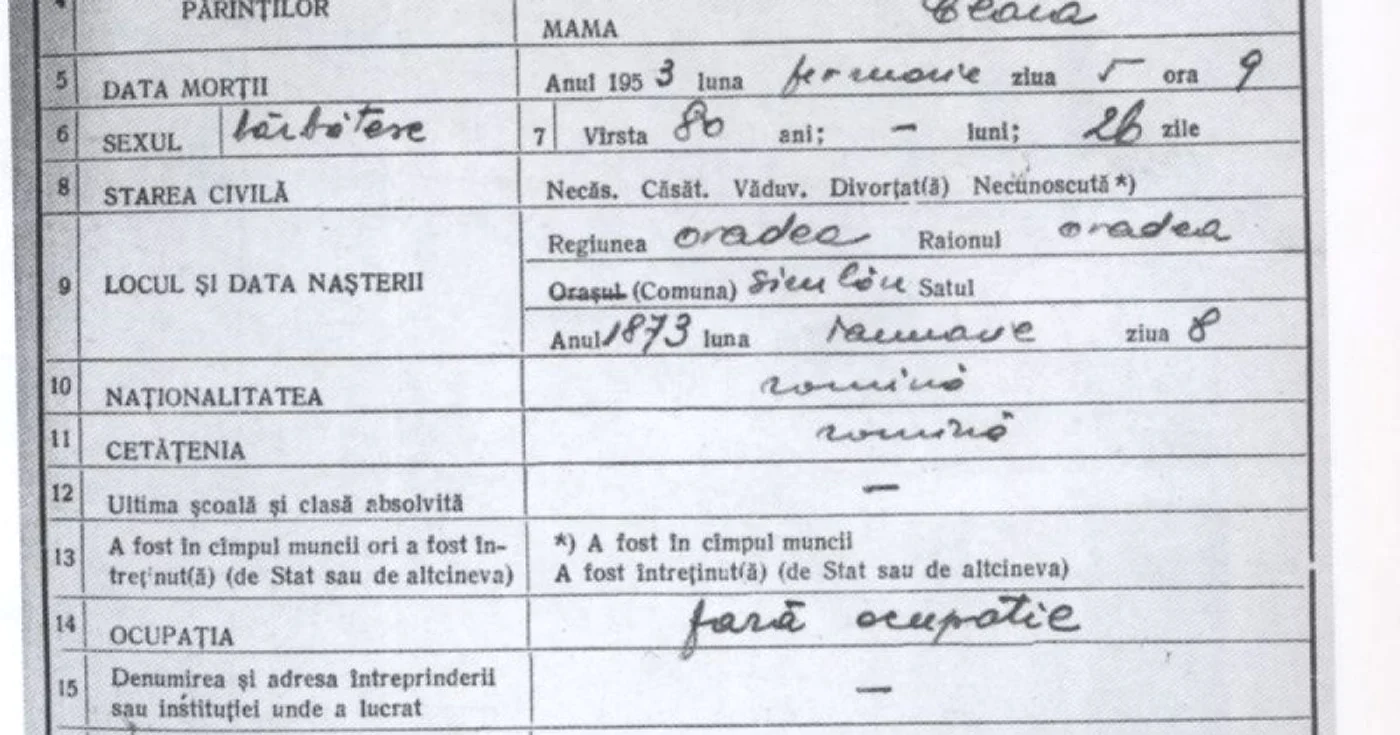 4 PĂRINȚILOR
MAMA Clara
5 DATA MORȚII Anul 1953 luna fevruarie ziua 5 ora 9
6 SEXUL bărbătesc 7 Vîrsta 80 ani; — luni; 26 zile
8 STAREA CIVILĂ Necăs. Căsăt. Văduv. Divorțat(ă) Necunoscută*)
9 LOCUL ȘI DATA NAȘTERII
Regiunea oradea Raionul oradea
Orașul (Comuna) Satul
Anul 1873 luna ianuarie ziua 8
10 NAȚIONALITATEA romînă
11 CETĂȚENIA romînă
12 Ultima școală și clasă absolvită —
13 A fost în cîmpul muncii ori a fost în- *) A fost în cîmpul muncii
treținut(ă) (de Stat sau de altcineva) A fost întreținut(ă) (de Stat sau de altcineva)
14 OCUPAȚIA fară ocupatie
15 Denumirea și adresa întreprinderii
sau instituției unde a lucrat —